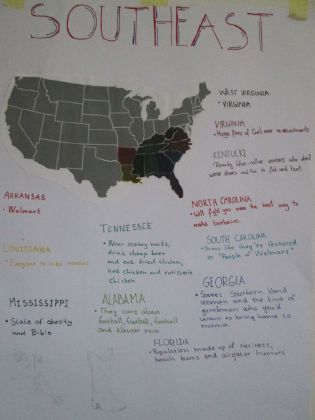 SOUTHEAST
WEST VIRGINIA
• VIRGINIA
VIRGINIA
• Huge fans of Civil-war re-enactments
KENTUCKY
Mainly blue-collar workers who don't
wear shoes and like to fish and hunt
ARKANSAS
• Walmart
NORTH CAROLINA
• Will fight you over the best way to
make barbecue.
TENNESSEE
• Wear cowboy boots,
drink cheap beer
and eat fried chicken,
hot chicken and rotisserie
chicken
SOUTH CAROLINA
• Dress like they're featured
in "People of Walmart"
LOUISIANA
• Everyone is like
GEORGIA
• Sweet Southern blond
women and the kind of
gentlemen who you'd
want to bring home to
mama
MISSISSIPPI
• State of obesity
and Bible
ALABAMA
• They care about
football, football, football
and Nascar race
FLORIDA
• Population made up of retirees,
beach bums and alligator hunters